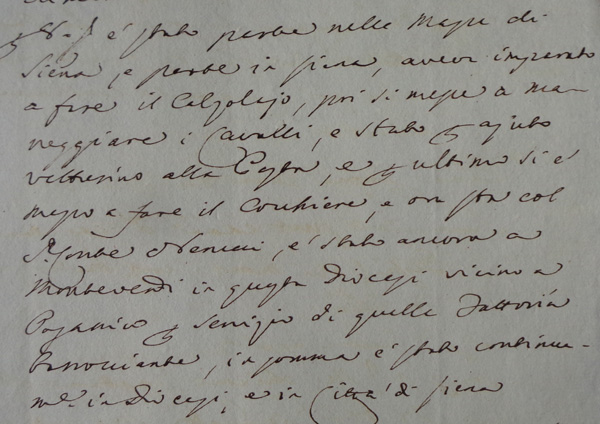 è stato parte nelle Masse di
Siena, e parte in Siena, avevo imparato
a fare il Calzolajo, poi si messe a ma-
neggiare i Cavalli, e stato ajuto
vetturino alla Posta, e ultimo si è
messo a fare il Cocchiere, e ora sta col
Sr. Conte Nerucci, è stato ancora a
Monteverdi in questa Diocesi vicino a
Paganico servizio di quella Fattoria
in somma è stato continua-
me. in Diocesi, e in Città di Siena